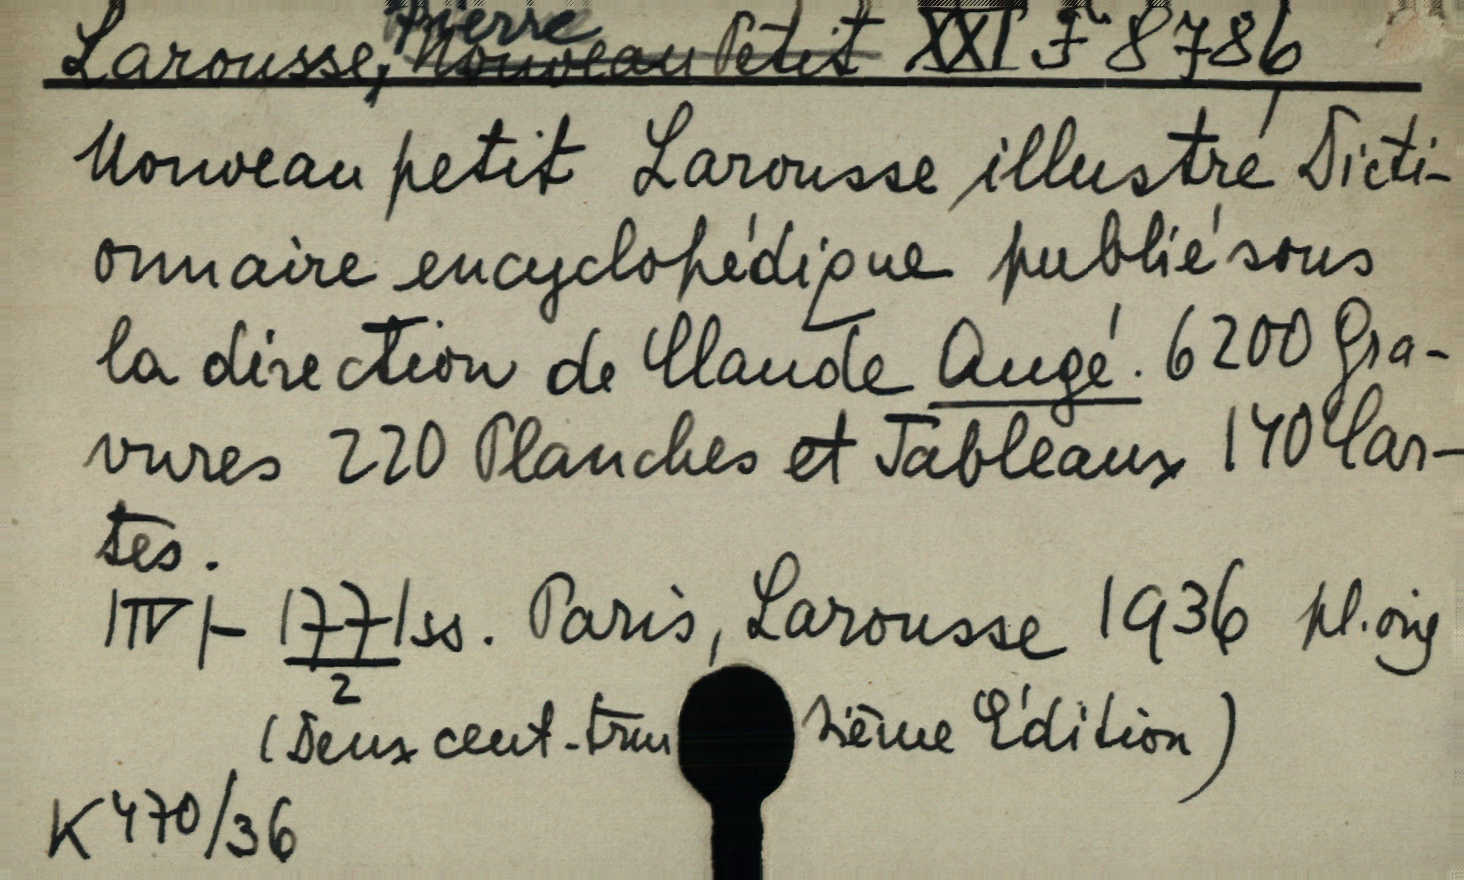 Larousse, Pierre Nouveau Petit XXI F 8786
Nouveau petit Larousse illustré Dicti-
onnaire encyclopédique publié sous
la direction de Claude Augé. 6200 Gra-
vures 220 Planches et Tableaux 140 Car-
tes.
1771 ss. Paris, Larousse 1936
2
(Deux cent- zième Edition)
K 470/36